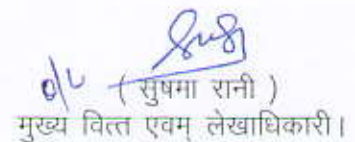 ( सुषमा रानी )
मुख्य वित्त एवम् लेखाधिकारी।